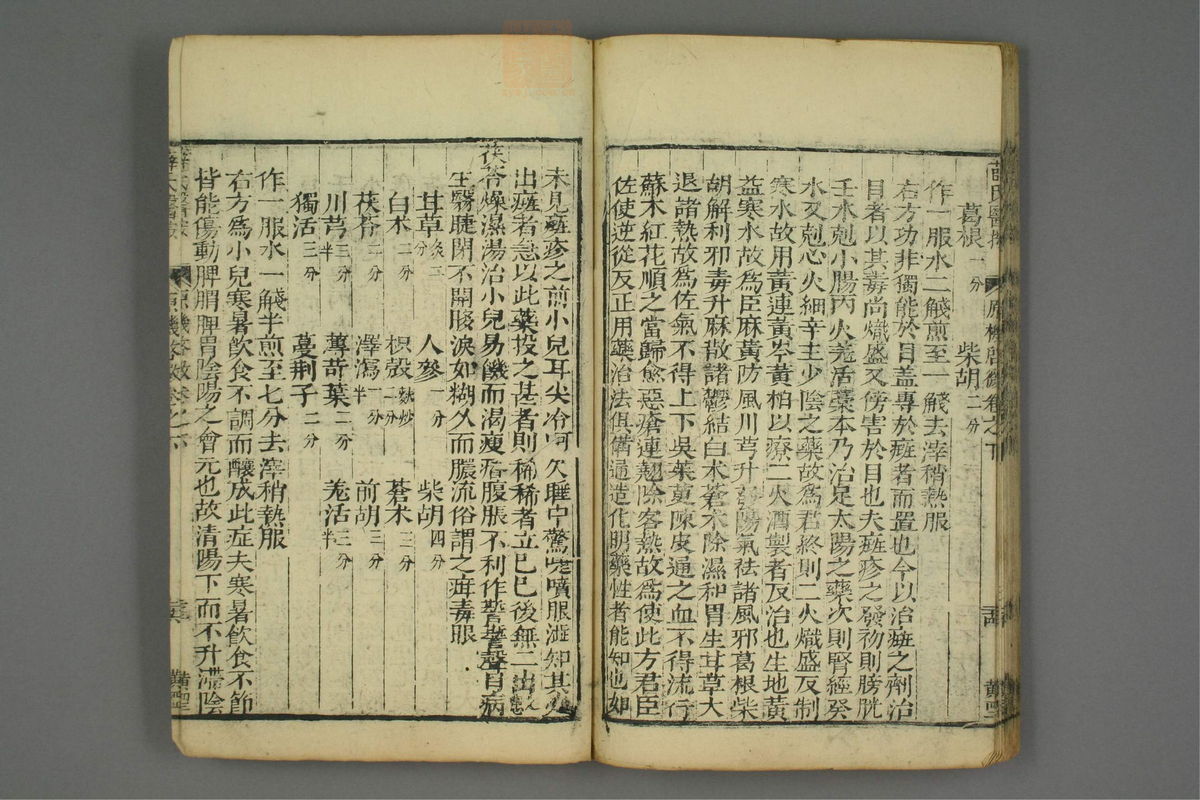 葛根一分 柴胡二分
作一服水二盞煎至一盞去滓稍熱服
右方功非獨能於目盖專於癍者而置也今以治癍之劑治
目者以其毒尚熾盛又傍害於目也夫癍疹之發初則膀胱
壬水剋小腸丙火羗活藁本乃治足太陽之藥次則腎經癸
水又剋心火細辛主少陰之藥故爲君終則二火熾盛反制
寒水故用黃連黃芩黃柏以療二火酒製者反治也生地黃
益寒水故爲臣麻黃防風川芎升發陽氣祛諸風邪葛根柴
胡解利邪毒升麻散諸鬱結白术蒼术除濕和胃生甘草大
退諸熱故爲佐氣不得上下吳茱萸陳皮通之血不得流行
蘇木紅花順之當歸愈惡瘡連翹除客熱故爲使此方君臣
佐使逆從反正用藥治法俱備通造化明藥性者能知也如
未見癍疹之前小兒耳尖冷呵欠睡中驚嚏噴眼澁知其
出癍者急以此藥投之甚者則稀稀者立已已後無二出
茯苓燥濕湯治小兒易饑而渴瘦瘠腹脹不利作聲目病
生翳睫閉不開眵淚如糊久而膿流俗謂之疳毒眼
甘草炙三分 人參一分 柴胡四分
白术二分 枳殼麩炒二分 蒼术三分
茯苓二分 澤瀉一分半 前胡三分
川芎三分半 薄荷葉二分 羗活三分半
獨活三分 蔓荆子二分
作一服水一盞半煎至七分去滓稍熱服
右方爲小兒寒暑飮食不調而釀成此症夫寒暑飮食不節
皆能傷動脾胃脾胃陰陽之會元也故清陽下而不升濁陰